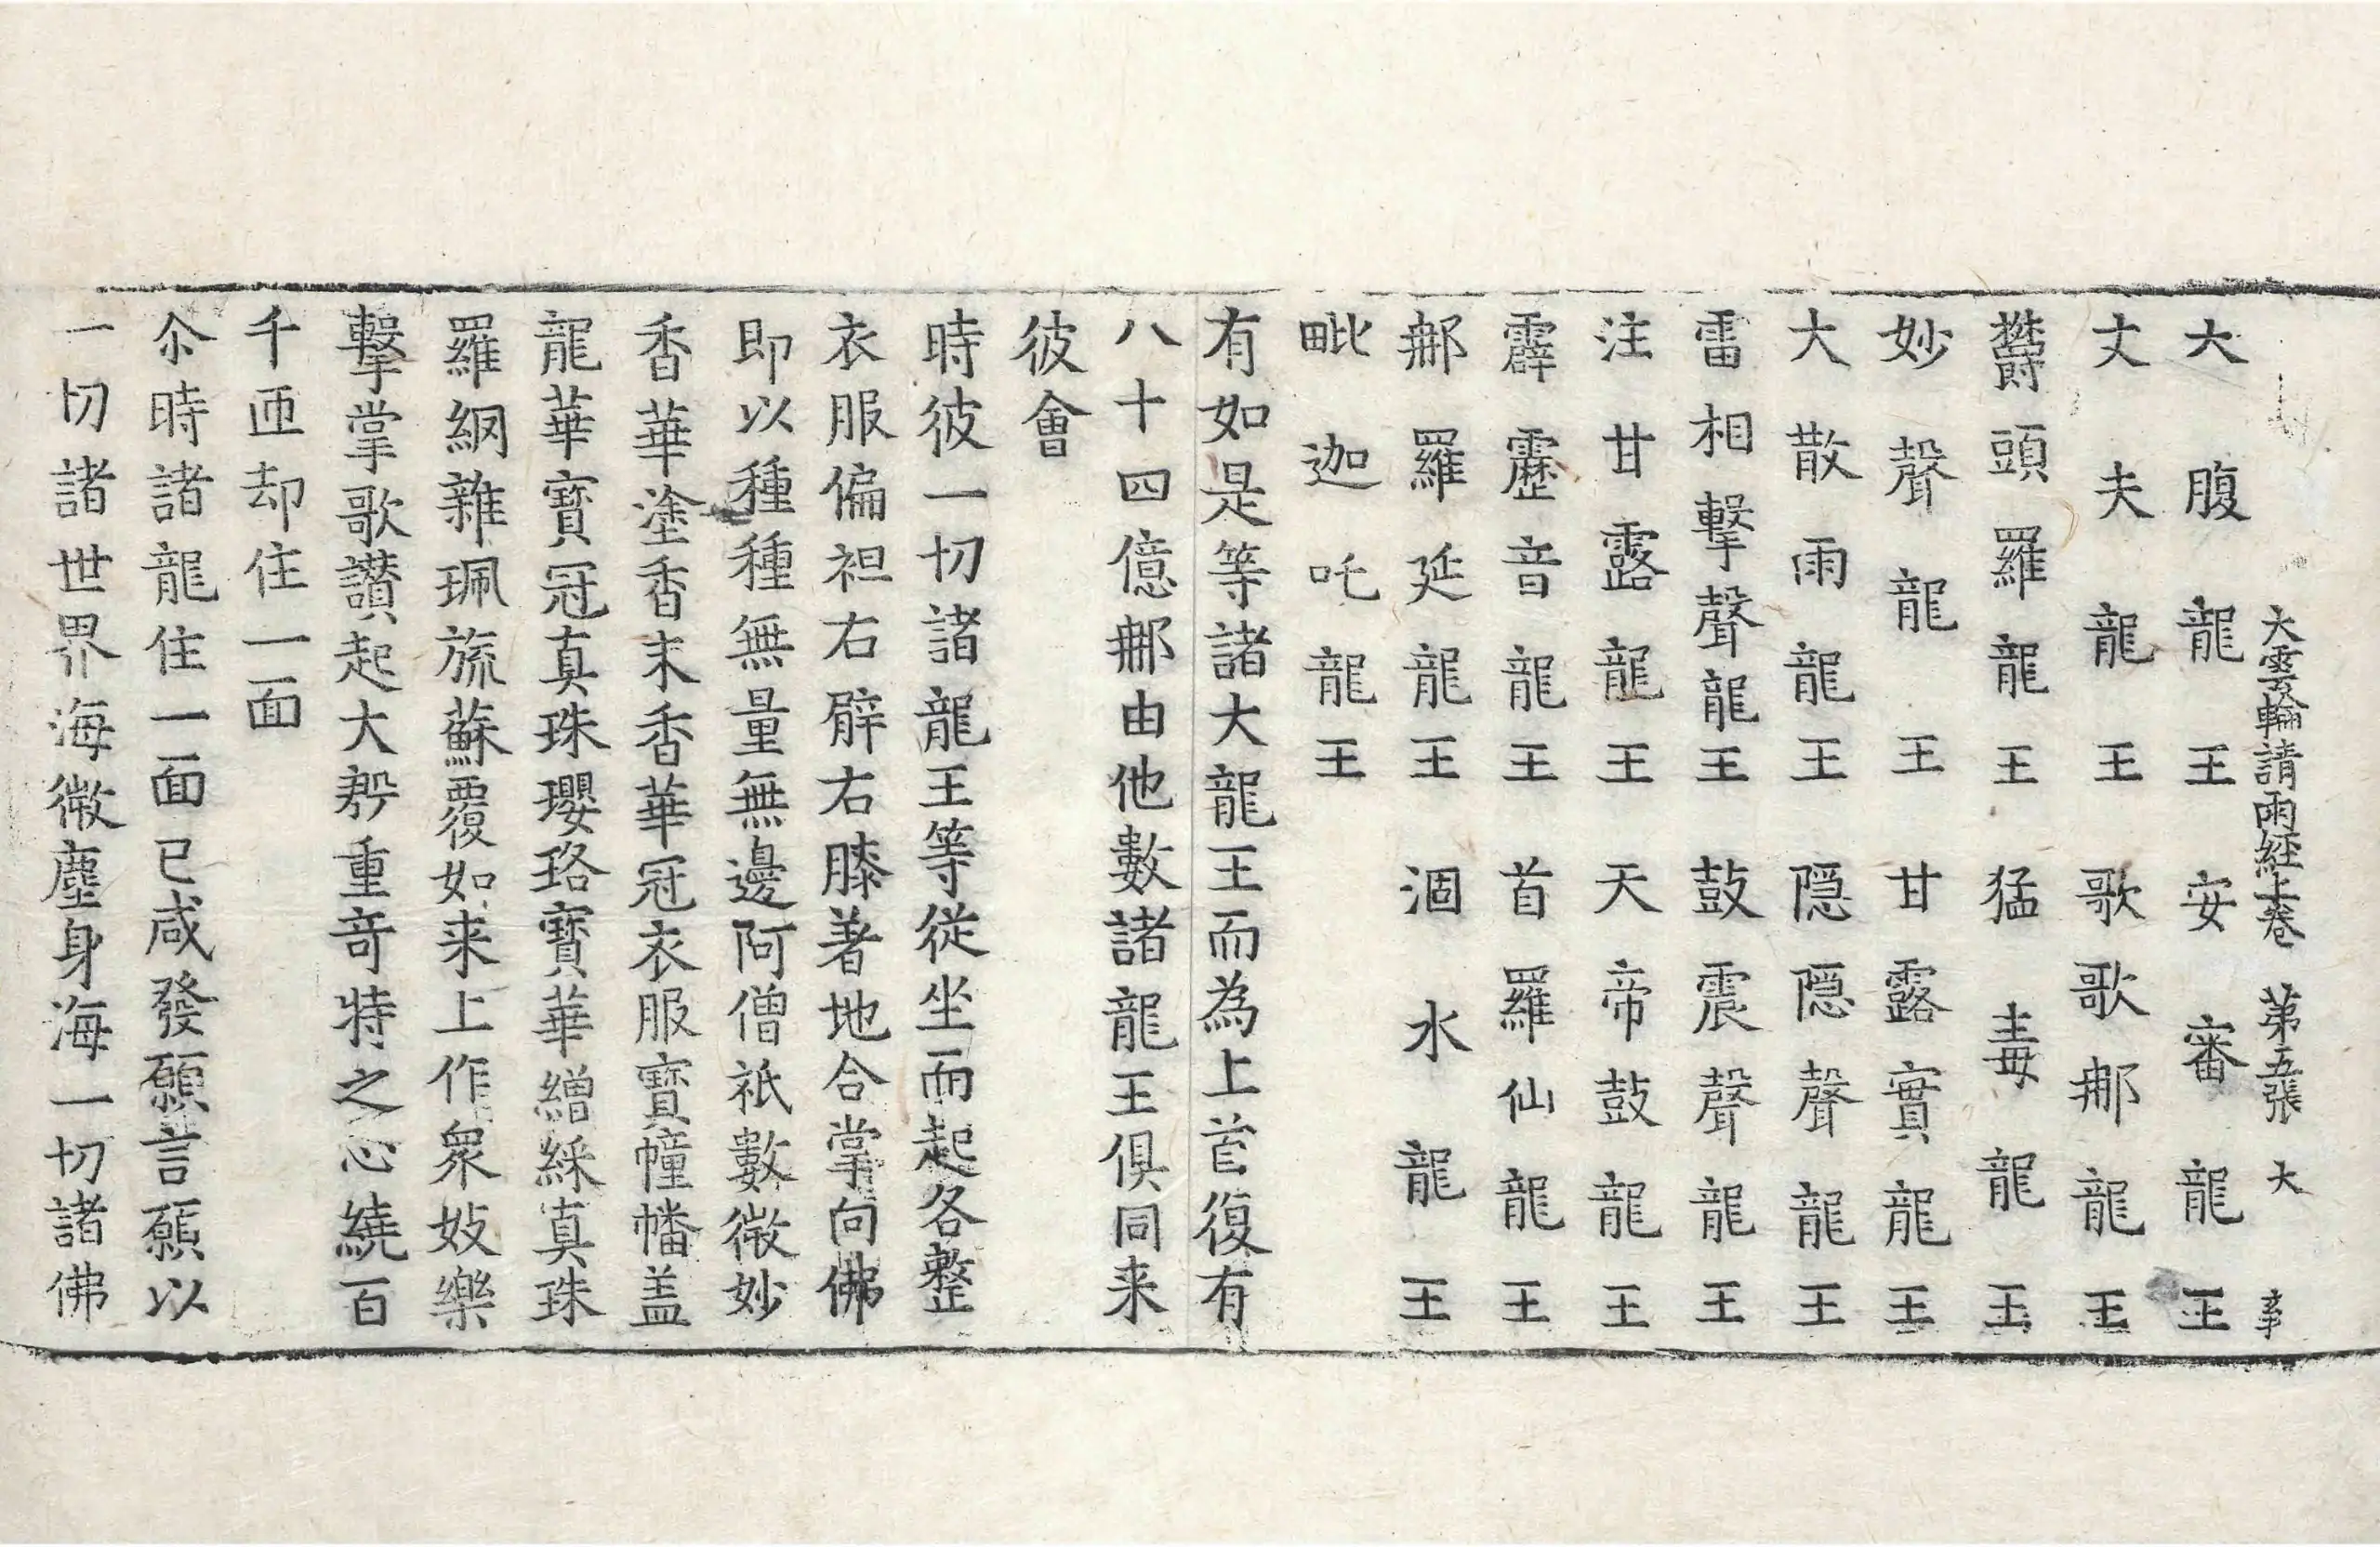 大雲輪請雨經上卷 第五張 大
大腹龍王 安審龍王
丈夫龍王 歌歌郍龍王
欝頭羅龍王 猛毒龍王
妙聲龍王 甘露實龍王
大散雨龍王 隠隠聲龍王
雷相擊聲龍王 鼓震聲龍王
注甘露龍王 天帝鼓龍王
霹靂音龍王 首羅仙龍王
郍羅延龍王 涸水龍王
毗迦吒龍王
有如是等諸大龍王而為上首復有
八十四億郍由他數諸龍王俱同来
彼會
時彼一切諸龍王等從坐而起各整
衣服偏袒右臂右膝著地合掌向佛
即以種種無量無邊阿僧祇數微妙
香華塗香末香華冠衣服寳幢幡盖
龍華寳冠真珠瓔珞寳華繒綵真珠
羅網雜珮旒蘇覆如来上作衆妓樂
擊掌歌讃起大𣫍重竒特之心繞百
千匝却住一面
尒時諸龍住一面已咸發願言願以
一切諸世界海微塵身海一切諸佛